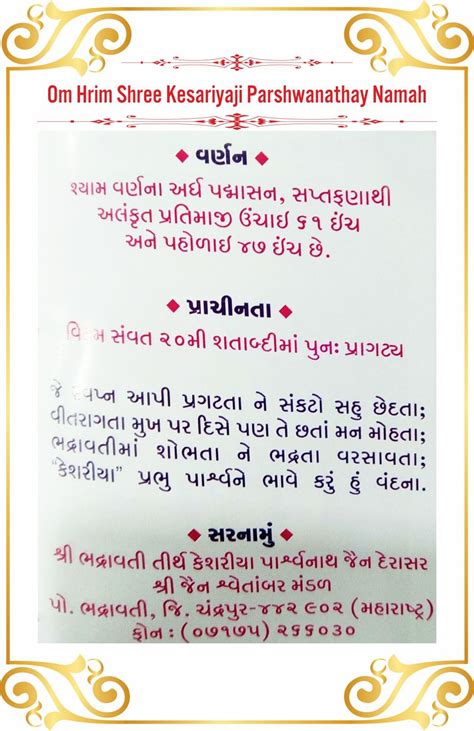 Om Hrim Shree Kesariyaji Parshwanathay Namah
વર્ણન
શ્યામ વર્ણના અર્ધ પદ્માસન, સપ્તફણાથી
અલંકૃત પ્રતિમાજી ઉંચાઇ ૬૧ ઈંચ
અને પહોળાઇ ૪૭ ઈંચ છે.
પ્રાચીનતા
સંવત ૨૦મી શતાબ્દીમાં પુનઃ પ્રાગટ્ય
જે આપી પ્રગટતા ને સંકટો સહુ છેદતા;
વીતરાગતા મુખ પર દિસે પણ તે છતાં મન મોહતા;
ભદ્રાવતીમાં શોભતા ને ભદ્રતા વરસાવતા;
“કેશરીયા” પ્રભુ પાર્શ્વને ભાવે કરું હું વંદના.
સરનામું
શ્રી ભદ્રાવતી તીર્થ કેશરીયા પાર્શ્વનાથ જૈન દેરાસર
શ્રી જૈન શ્વેતાંબર મંડળ
પો. ભદ્રાવતી, જિ. ચંદ્રપુર-૪૪૨ ૯૦૨ (મહારાષ્ટ્ર)
ફોન : (૦૭૧૭૫) ૨૬૬૦૩૦